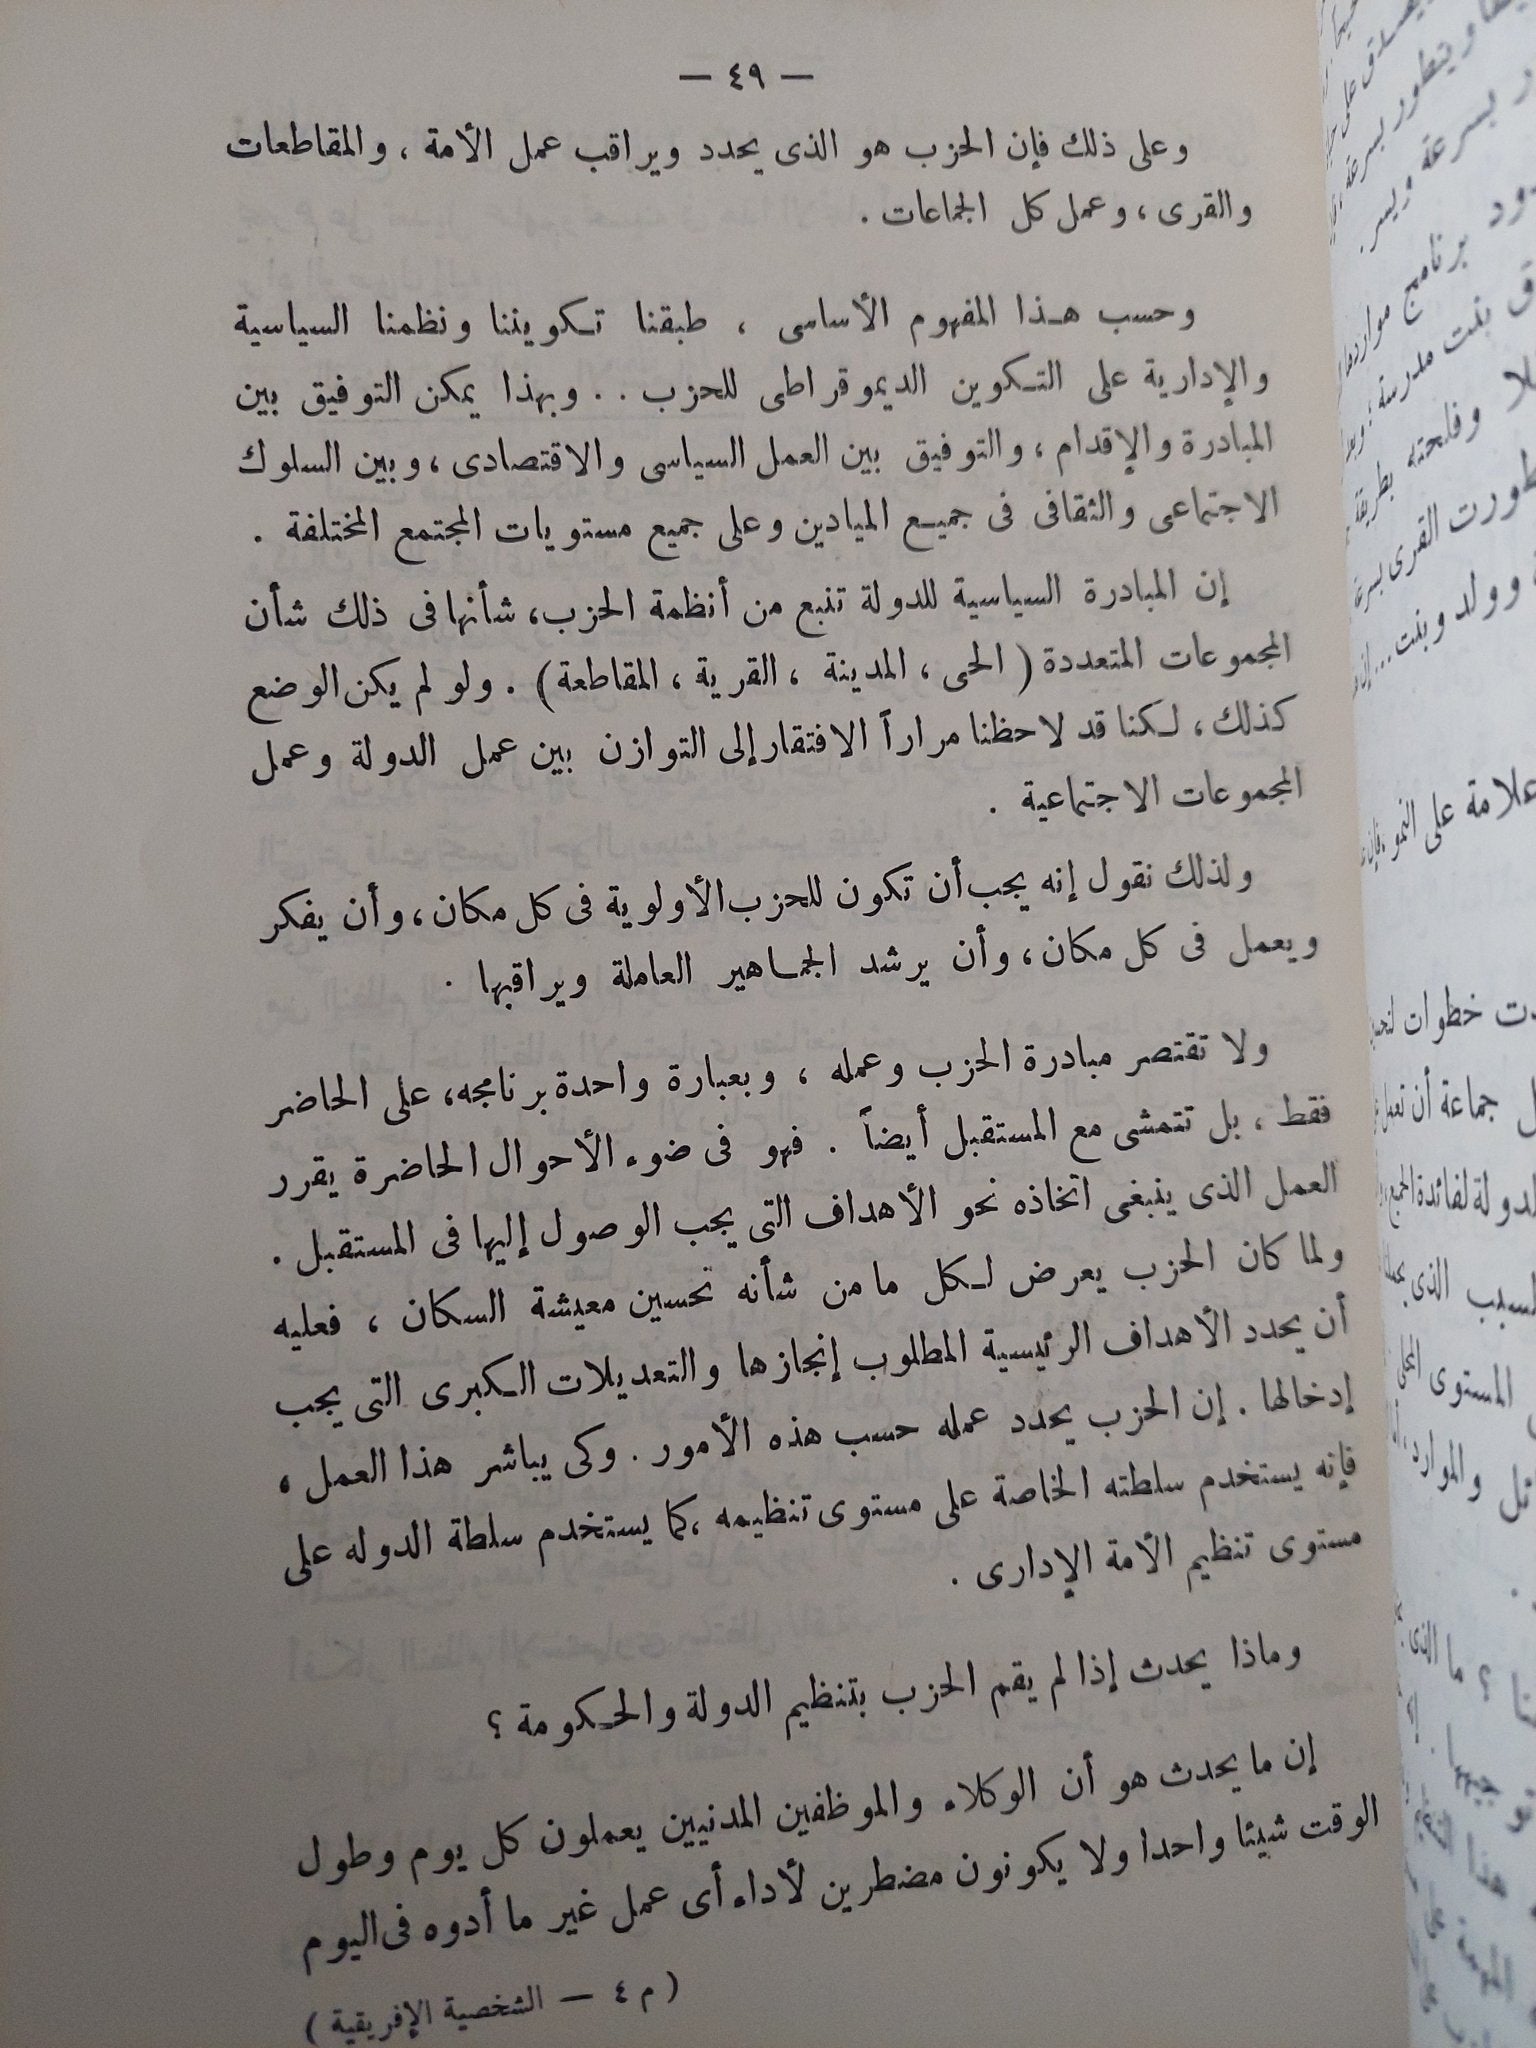 — ٤٩ —
وعلى ذلك فإن الحزب هو الذى يحدد ويراقب عمل الأمة ، والمقاطعات
والقرى ، وعمل كل الجماعات .
وحسب هذا المفهوم الأساسى ، طبقنا تكويننا ونظمنا السياسية
والإدارية على التكوين الديموقراطى للحزب . . وبهذا يمكن التوفيق بين
المبادرة والإقدام ، والتوفيق بين العمل السياسى والاقتصادى ، وبين السلوك
الاجتماعى والثقافى فى جميع الميادين وعلى جميع مستويات المجتمع المختلفة .
إن المبادرة السياسية للدولة تنبع من أنظمة الحزب، شأنها فى ذلك شأن
المجموعات المتعددة ( الحى ، المدينة ، القرية ، المقاطعة ) . ولو لم يكن الوضع
كذلك ، لكنا قد لاحظنا مراراً الافتقار إلى التوازن بين عمل الدولة وعمل
المجموعات الاجتماعية .
ولذلك نقول إنه يجب أن تكون للحزب الأولوية فى كل مكان ، وأن يفكر
ويعمل فى كل مكان ، وأن يرشد الجماهير العاملة ويراقبها .
ولا تقتصر مبادرة الحزب وعمله ، وبعبارة واحدة برنامجه، على الحاضر
فقط ، بل تتمشى مع المستقبل أيضاً . فهو فى ضوء الأحوال الحاضرة يقرر
العمل الذى ينبغى اتخاذه نحو الأهداف التى يجب الوصول إليها فى المستقبل .
ولما كان الحزب يعرض لكل ما من شأنه تحسين معيشة السكان ، فعليه
أن يحدد الأهداف الرئيسية المطلوب إنجازها والتعديلات الكبرى التى يجب
إدخالها . إن الحزب يحدد عمله حسب هذه الأمور . وكى يباشر هذا العمل ،
فإنه يستخدم سلطته الخاصة على مستوى تنظيمه ،كما يستخدم سلطة الدوله على
مستوى تنظيم الأمة الإدارى .
وماذا يحدث إذا لم يقم الحزب بتنظيم الدولة والحكومة ؟
إن ما يحدث هو أن الوكلاء والموظفين المدنيين يعملون كل يوم وطول
الوقت شيئا واحدا ولا يكونون مضطرين لأداء أى عمل غير ما أدوه فى اليوم
( م ٤ — الشخصية الإفريقية )